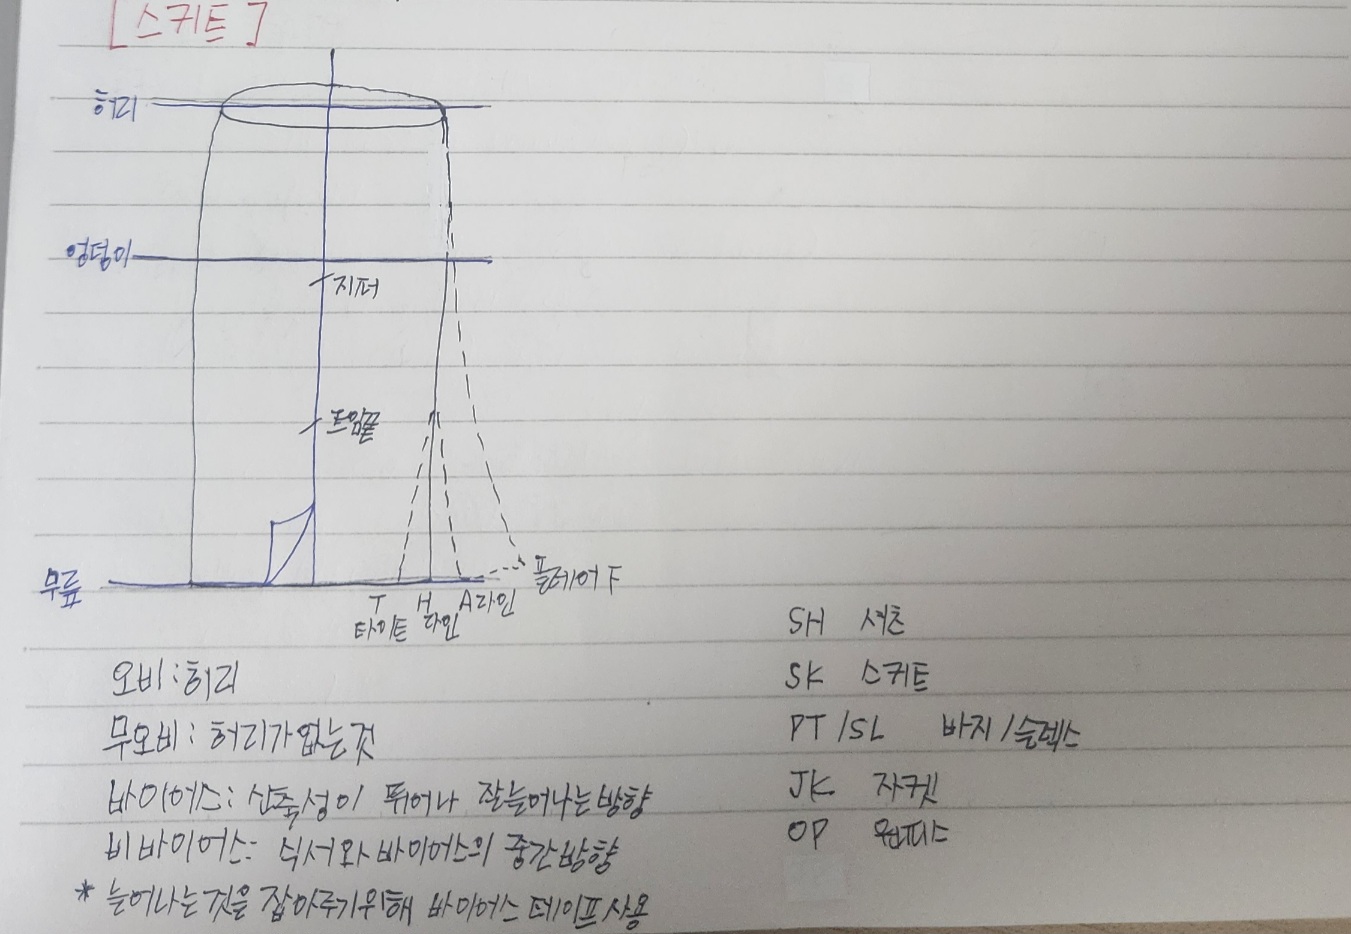 [스커트]
허리
엉덩이
지퍼
트임끝
무릎
T H A라인
타이트 라인
플레어 F
오비:허리
무오비: 허리가 없는 것
바이어스: 신축성이 뛰어나 잘 늘어나는 방향
비바이어스: 식서와 바이어스의 중간 방향
* 늘어나는 것을 잡아주기위해 바이어스 테이프 사용
SH 셔츠
SK 스커트
PT/SL 바지/슬렉스
JK 자켓
OP 원피스